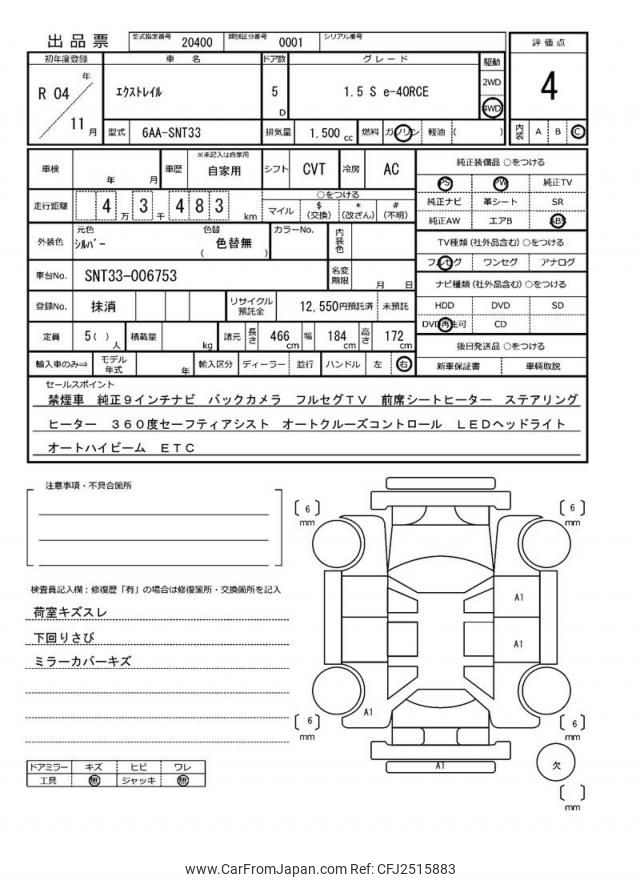 出品票 型式指定番号 20400 類別区分番号 0001 シリアル番号
評価点
4
内装 A B C
初年度登録 車名 ドア数 グレード 駆動
R 04 年 11 月
エクストレイル 5 D 1.5 S e-4ORCE 2WD 4WD
型式 6AA-SNT33 排気量 1,500 cc 燃料 ガソリン 軽油 ( )
車検 年 月 車歴 ※未記入は自家用 自家用 シフト CVT 冷房 AC
走行距離 4 万 3 千 4 8 3 km ○をつける
マイル $(交換) *(改ざん) #(不明)
外装色 元色 シルバー 色替 ( 色替無 ) カラーNo. 内装色
車台No. SNT33-006753 名変期限 月 日
登録No. 抹消 リサイクル預託金 12,550円預託済 未預託
定員 5( )人 積載量 kg 諸元 長さ 466 cm 幅 184 cm 高さ 172 cm
輸入車のみ⇒ モデル年式 年 輸入区分 ディーラー 並行 ハンドル 左 右
純正装備品 ○をつける
PS PW 純正TV
純正ナビ 革シート SR
純正AW エアB ABS
TV種類(社外品含む)○をつける
フルセグ ワンセグ アナログ
ナビ種類(社外品含む)○をつける
HDD DVD SD
DVD再生可 CD
後日発送品 ○をつける
新車保証書 車輌取説
セールスポイント
禁煙車 純正9インチナビ バックカメラ フルセグTV 前席シートヒーター ステアリング
ヒーター 360度セーフティアシスト オートクルーズコントロール LEDヘッドライト
オートハイビーム ETC
注意事項・不具合箇所
検査員記入欄:修復歴「有」の場合は修復箇所・交換箇所を記入
荷室キズスレ
下回りさび
ミラーカバーキズ
ドアミラー キズ ヒビ ワレ
工具 無 ジャッキ 無
[ 6 ] mm
[ 6 ] mm
A1
A1
A1
[ 6 ] mm
[ 6 ] mm
A1
欠
[ ] mm
www.CarFromJapan.com Ref: CFJ2515883